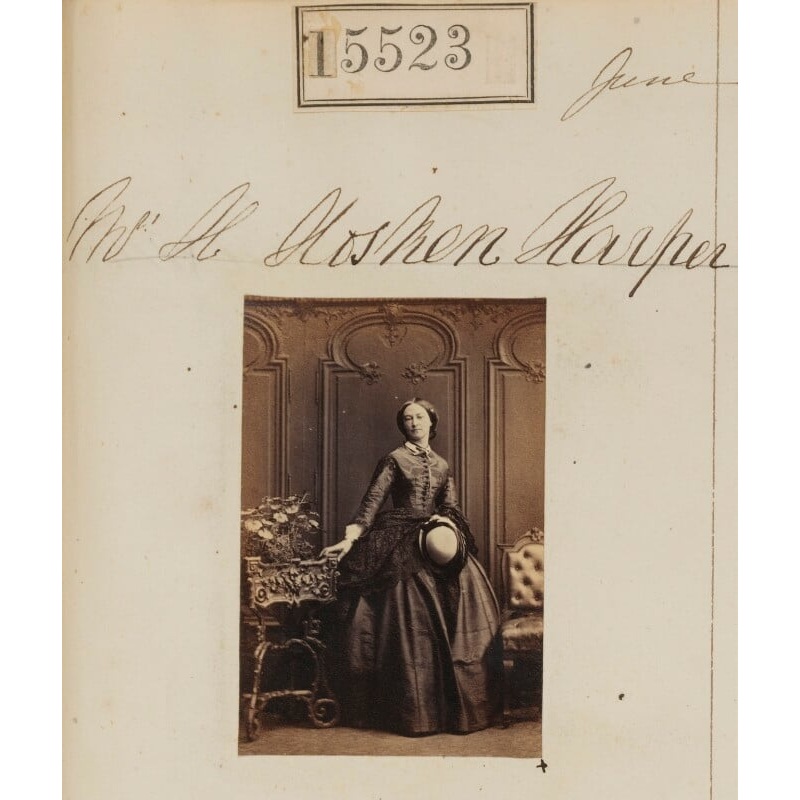 15523
June
Mrs H Hosken Harper